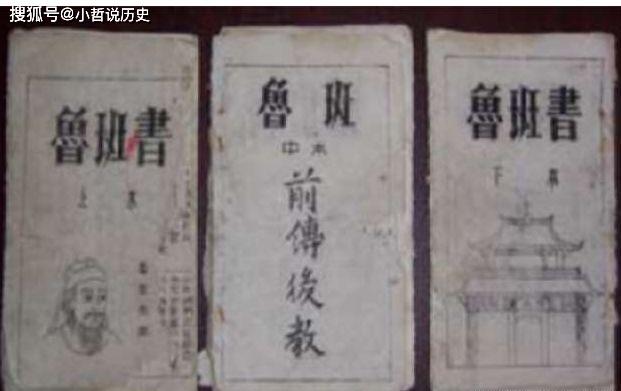 搜狐号@小哲说历史
魯班書
上本
魯班
中本
前傳後教
魯班書
下本